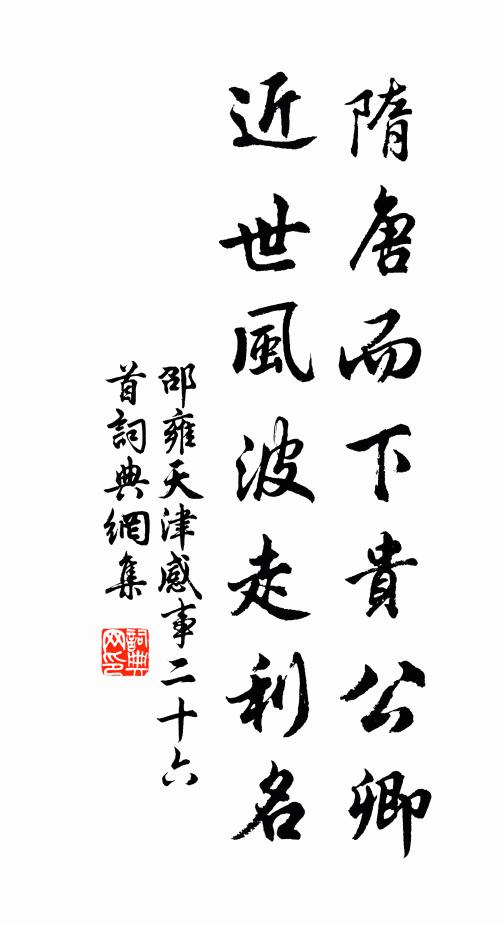 隋唐而下貴公卿
近世風波走利名
邵雍天津感事二十六
首詞典網集
詞典
网印